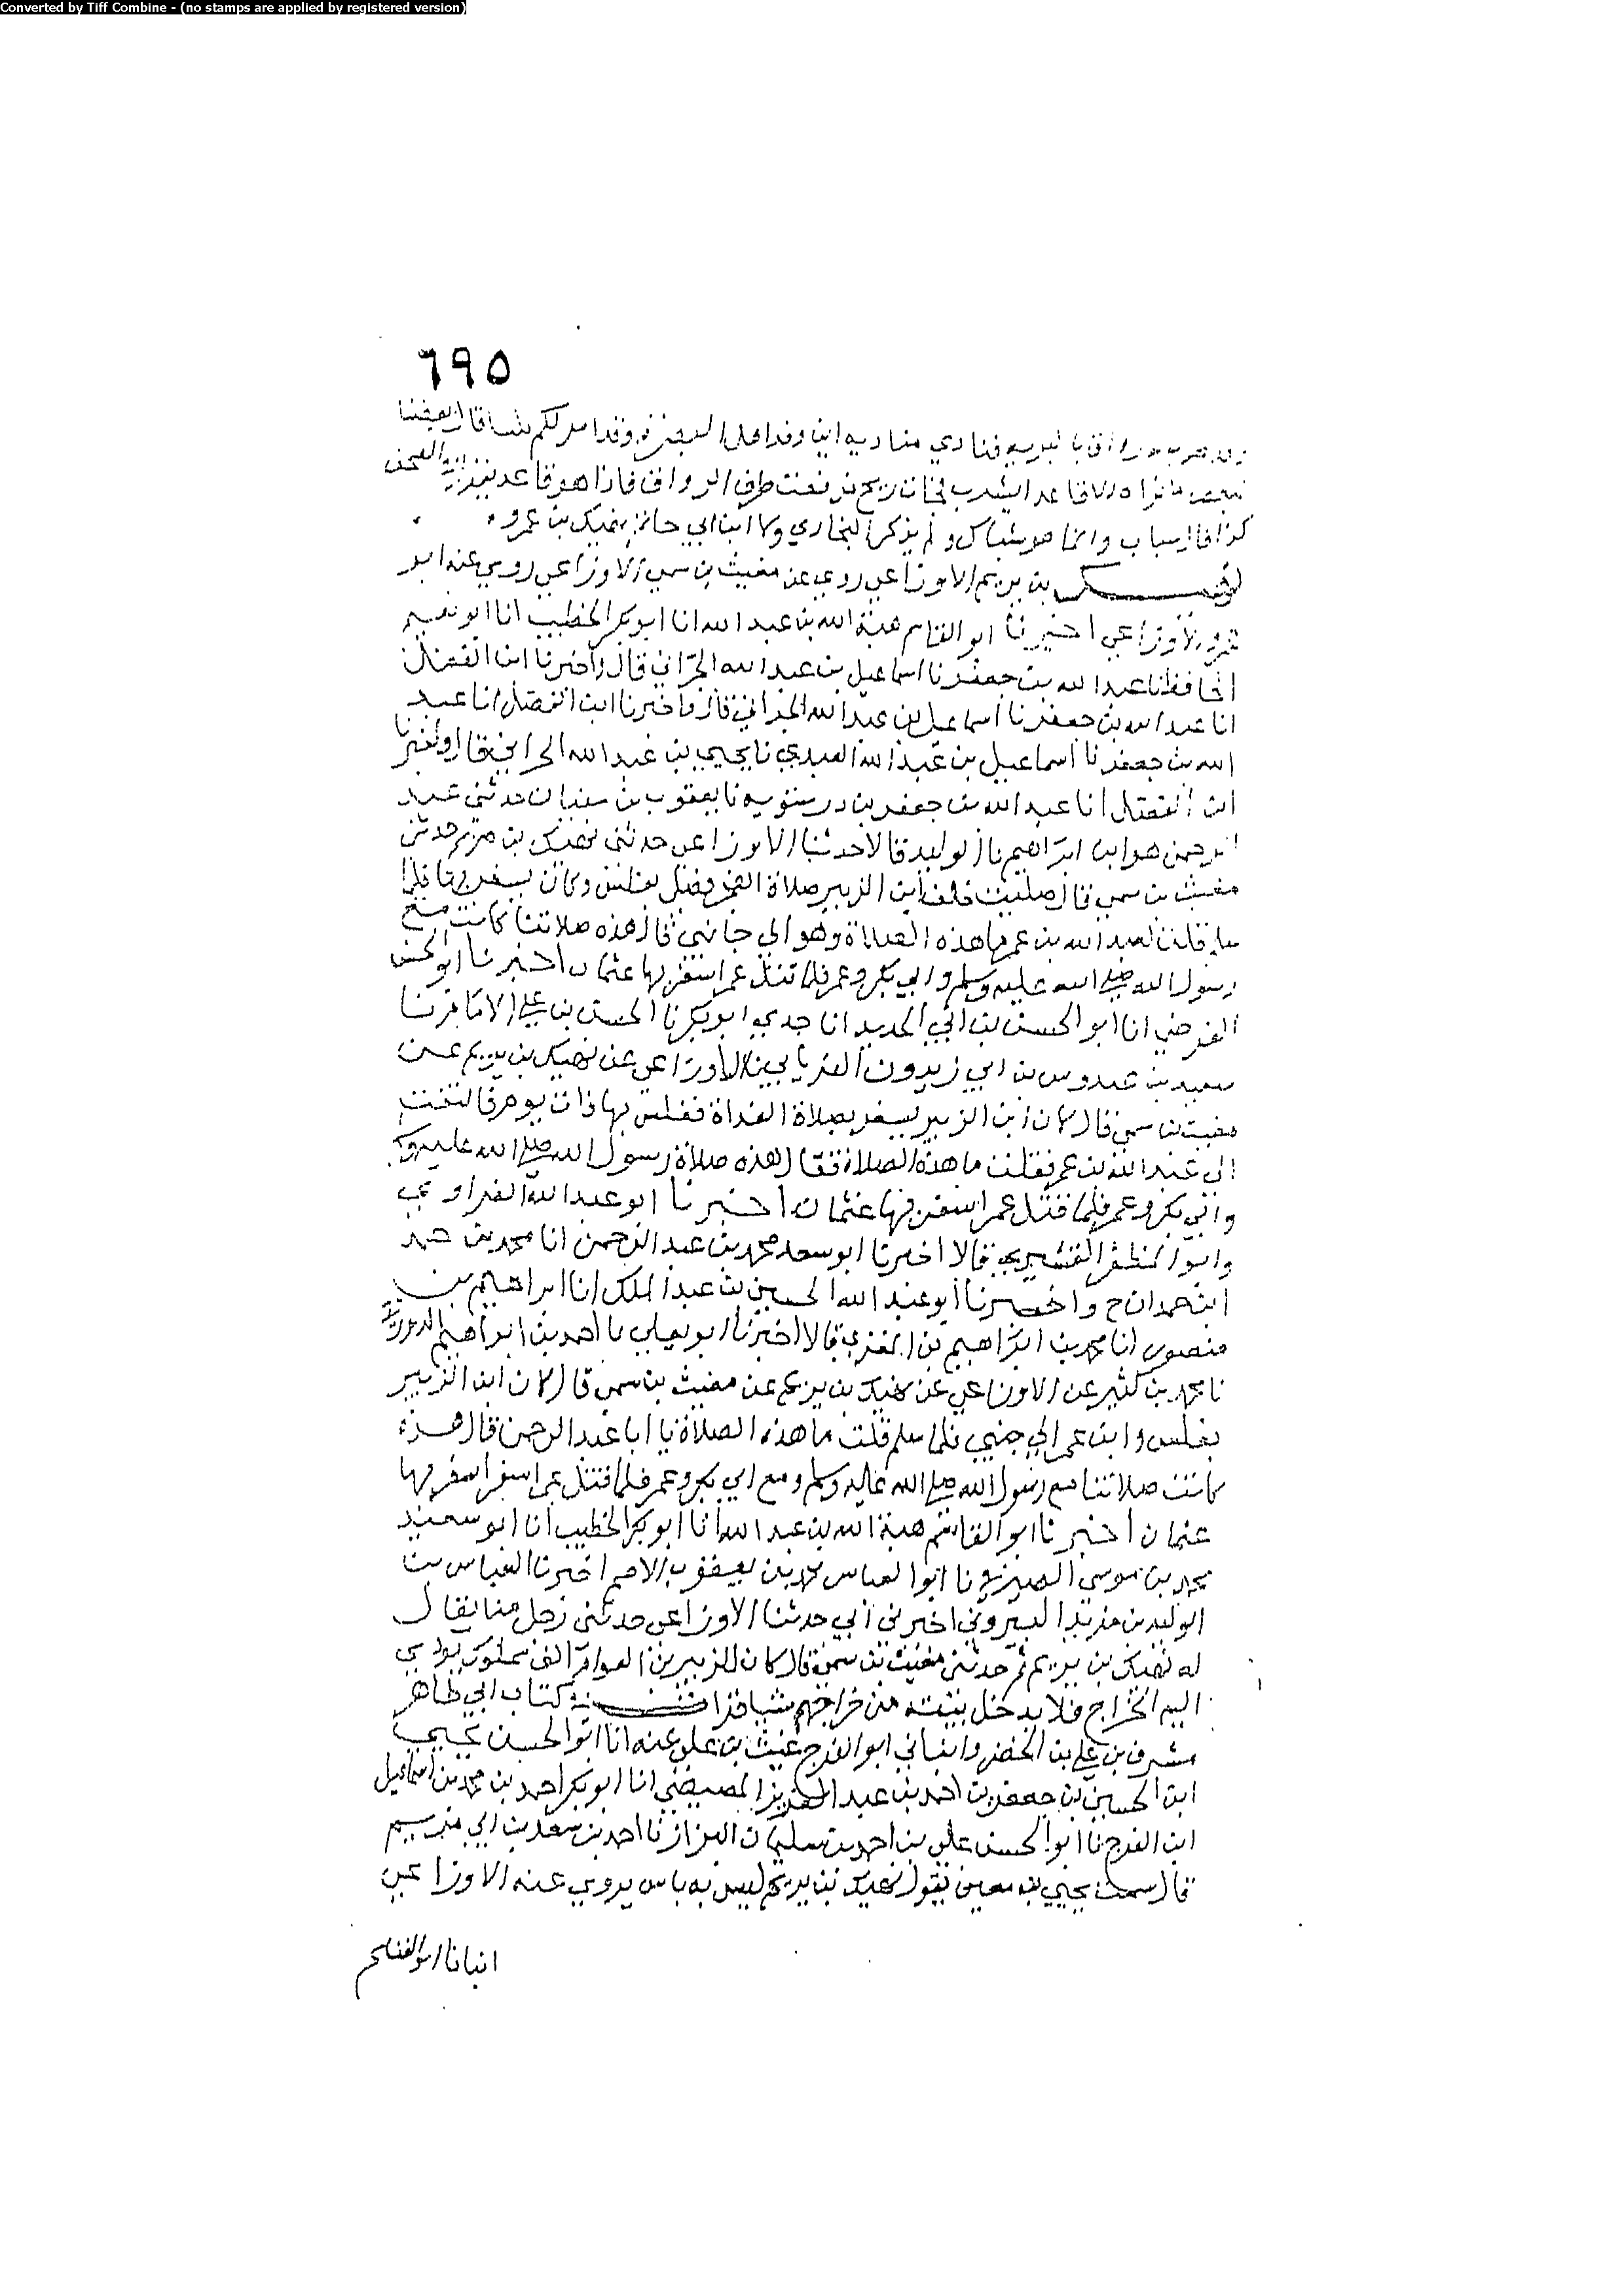 Converted by Tiff Combine - (no stamps are applied by registered version)
٦٩٥
فنادي مناديه اين وفد اهل البصرة وقد امر لكم
الا قاعد الشرب فجات ريح فرفعت طرف الرواق فاذا هو قاعد
كذا قال سباب وانما هو شباك ولم يذكر البخاري ولا ابن ابي حاتم نهيك بن عمرو
نهيك بن يريم الاوزاعي روي عن مغيث بن سمي الاوزاعي روي عنه ابو
عمرو الاوزاعي اخبرنا ابو القاسم هبة الله بن عبد الله انا ابو بكر الخطيب انا ابو نعيم
الحافظ انا عبد الله بن جعفر نا اسماعيل بن عبد الله الحراني قال واخبرنا ابن الفضل
انا عبد الله بن جعفر نا اسماعيل بن عبد الله الحراني قال واخبرنا ابن الفضل انا عبد
الله بن جعفر نا اسماعيل بن عبد الله العبدي نا يحيي بن عبد الله الحراني قال واخبرنا
ابن الفضل انا عبد الله بن جعفر بن درستويه نا يعقوب بن سفيان حدثني عبد
الرحمن هو ابن ابراهيم نا الوليد قالا حدثنا الاوزاعي حدثني نهيك بن يريم حدثني
مغيث بن سمي قال صليت خلف ابن الزبير صلاة الفجر فصلي بغلس وكان يسفر بها فلما
سلم قلت لعبد الله بن عمر ما هذه الصلاة وهو الي جانبي قال هذه صلاتنا كانت مع
رسول الله صلي الله عليه وسلم وابي بكر وعمر فلما قتل عمر اسفر بها عثمان اخبرنا ابو الحسن
الفرضي انا ابو الحسن بن ابي الحديد انا جدي ابو بكر نا الحسن بن علي الامام نا
سعيد بن عبدوس بن ابي زيدون الفريابي نا الاوزاعي عن نهيك بن يريم عن
مغيث بن سمي قال كان ابن الزبير يسفر بصلاة الغداة فغلس بها ذات يوم فالتفت
الي عبد الله بن عمر فقلت ما هذه الصلاة فقال هذه صلاة رسول الله صلي الله عليه وسلم
وابي بكر وعمر فلما قتل عمر اسفر بها عثمان اخبرنا ابو عبد الله الفراوي
وابو المظفر القشيري قالا اخبرنا ابو سعد محمد بن عبد الرحمن انا محمد بن احمد
ابن حمدان ح واخبرنا ابو عبد الله الحسين بن عبد الملك انا ابراهيم بن
منصور انا محمد بن ابراهيم بن المقري قالا اخبرنا ابو يعلي نا احمد بن ابراهيم الدورقي
نا محمد بن كثير عن الاوزاعي عن نهيك بن يريم عن مغيث بن سمي قال كان ابن الزبير
يغلس وابن عمر الي جنبي فلما سلم قلت ما هذه الصلاة يا ابا عبد الرحمن قال هذه
كانت صلاتنا مع رسول الله صلي الله عليه وسلم ومع ابي بكر وعمر فلما قتل عمر اسفر اسفر بها
عثمان اخبرنا ابو القاسم هبة الله بن عبد الله انا ابو بكر الخطيب انا ابو سعيد
محمد بن موسي الصيرفي نا ابو العباس محمد بن يعقوب الاصم اخبرنا العباس بن
الوليد بن مزيد البيروتي اخبرني ابي حدثنا الاوزاعي حدثني رجل منا يقال
له نهيك بن يريم ثم حدثني مغيث بن سمي قال كان للزبير بن العوام الف مملوك يودي
اليه الخراج فلا يدخل بيته من خراجهم شيا قرات في كتاب ابي طاهر
مشرف بن علي بن الخضر وانباني ابو الفرج غيث بن علي عنه انا ابو الحسن يحيي
ابن الحسين بن جعفر بن احمد بن عبد العزيز المصيصي انا ابو بكر احمد بن محمد بن اسماعيل
ابن الفرج نا ابو الحسن علي بن احمد بن سليمان البزاز نا احمد بن سعد بن ابي مريم
قال سمعت يحيي بن معين يقول نهيك بن يريم ليس به باس يروي عنه الاوزاعي
انبانا ابو الغنايم